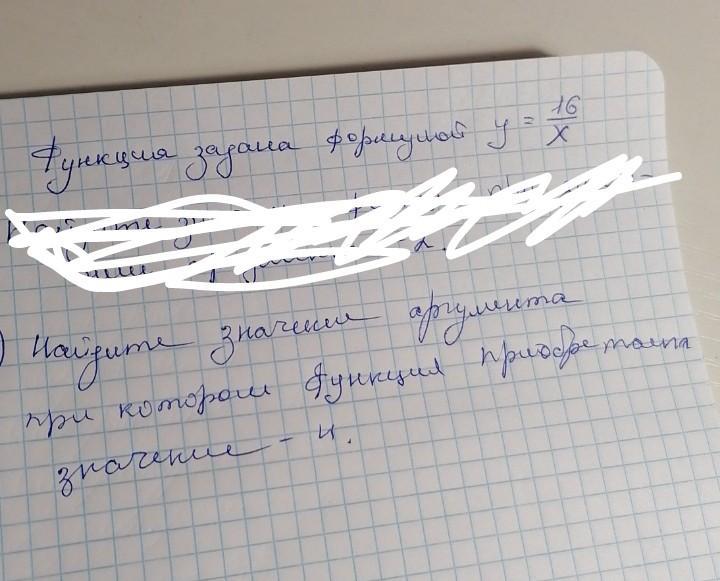 Функция задана формулой y = 16/x
) Найдите значение аргумента
при котором функция приобретает
значение - 4.